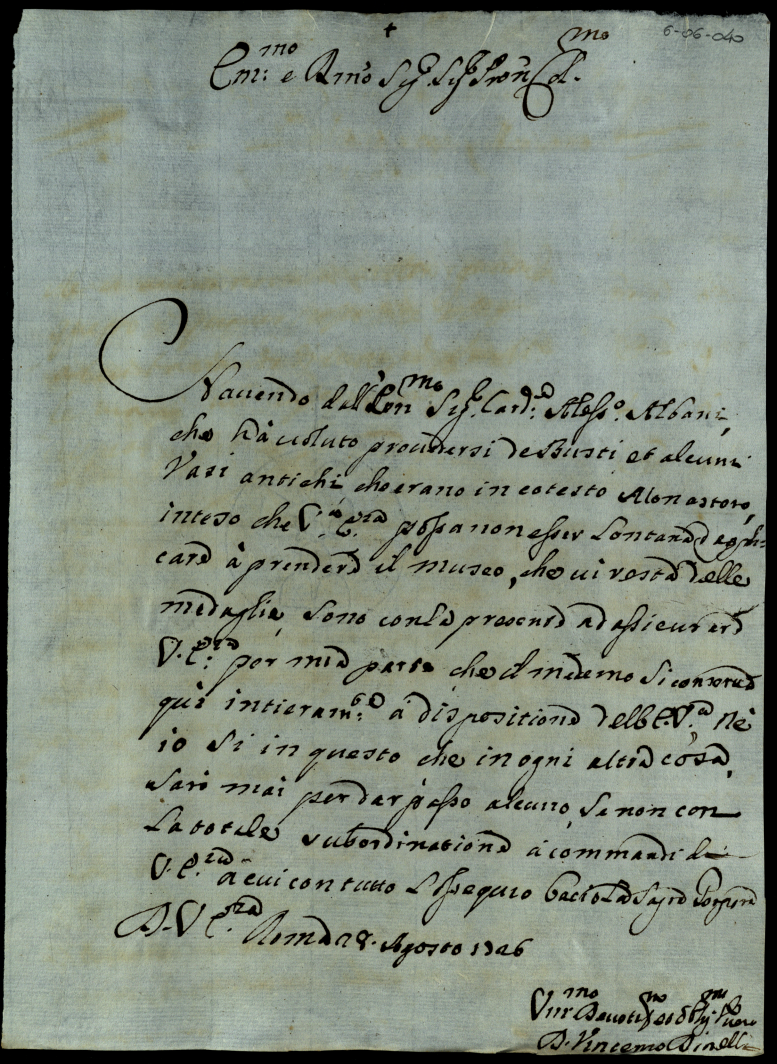 6-06-040
+
Em:mo e Rmo Sig.r Sig.r Pron Col.mo
Havendo dall'Em:mo Sig.r Card:le Aless.o Albani,
che hà voluto provedersi de Busti et alcuni
Vasi antichi, che erano in cotesto Monastero,
inteso che V.a E.za possa non esser lontana d'appli-
care à prendere il museo, che vi resta delle
medaglie, sono con la presente ad assicurare
V.E:za per mia parte che il medemo si conserva
quì intieram:te à dispositione dell'E.V.a nè
io sì in questo che in ogni altra cosa,
sarò mai per dar passo alcuno, se non con
la totale subordinatione à commandi di
V.E.za à cui con tutto l'ossequio bacio la Sagra Porpora
D. V.E.za Roma 28. Agosto 1726
Um:mo Devotis.mo et Obl.mo Servo
D. Vincenzo